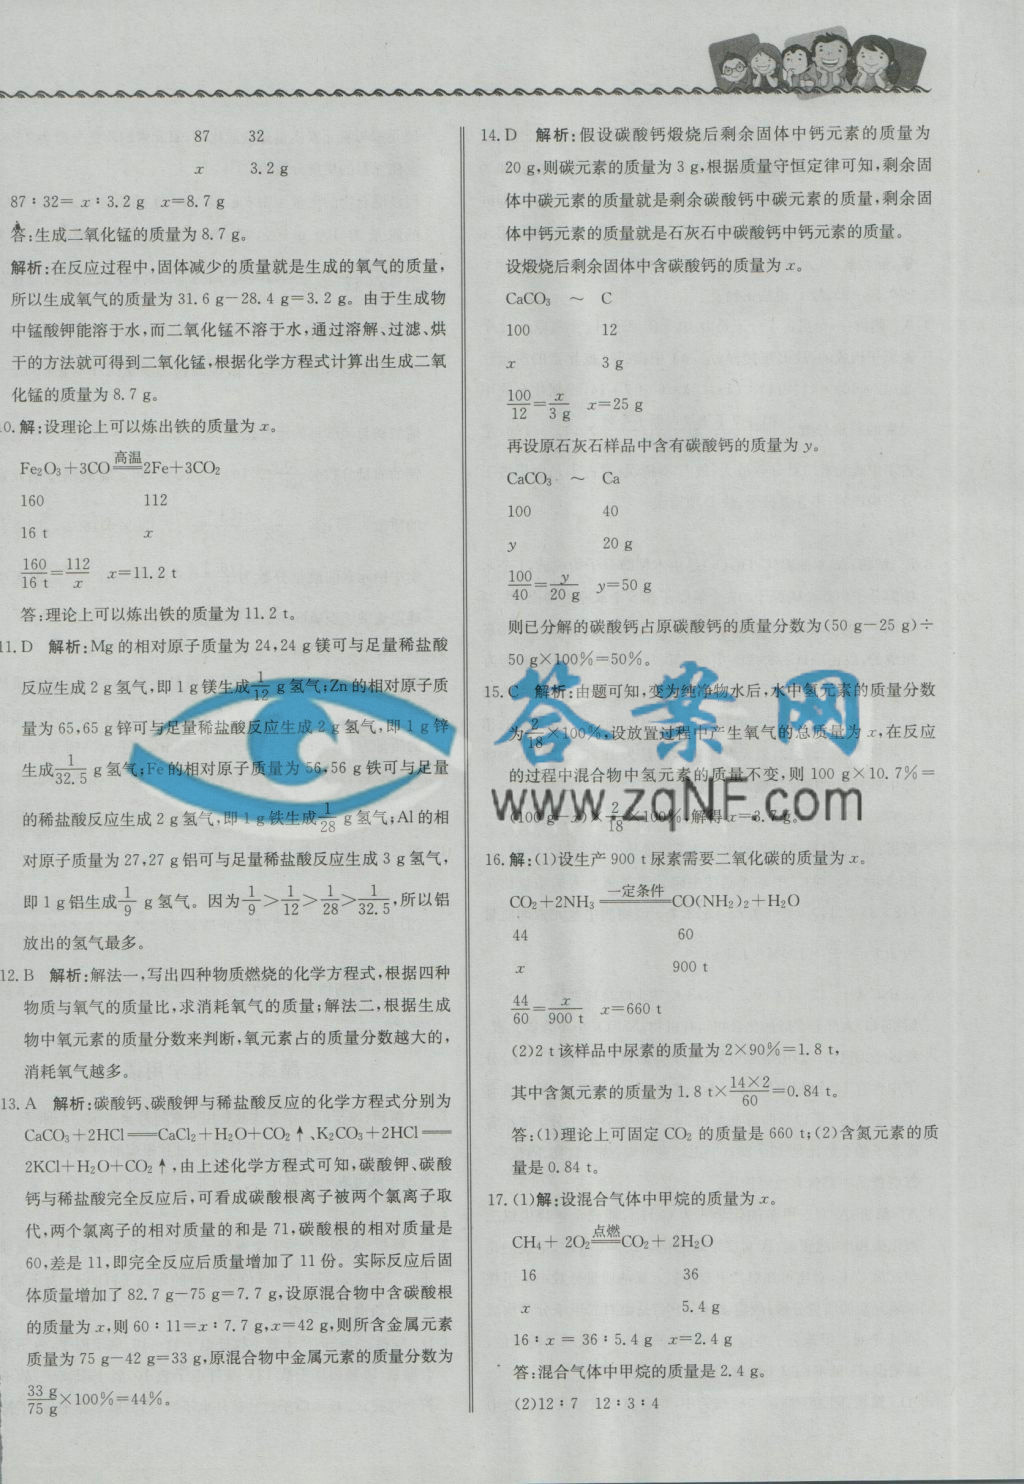 87 32
x 3.2 g
87∶32= x∶3.2 g x=8.7 g
答:生成二氧化锰的质量为 8.7 g。
解析:在反应过程中,固体减少的质量就是生成的氧气的质量,
所以生成氧气的质量为 31.6 g−28.4 g=3.2 g。由于生成物
中锰酸钾能溶于水,而二氧化锰不溶于水,通过溶解、过滤、烘
干的方法就可得到二氧化锰,根据化学方程式计算出生成二氧
化锰的质量为 8.7 g。
10.解:设理论上可以炼出铁的质量为 x。
Fe₂O₃+3CO ══高温══ 2Fe+3CO₂
160 112
16 t x
160/16 t=112/x x=11.2 t
答:理论上可以炼出铁的质量为 11.2 t。
11.D 解析:Mg 的相对原子质量为 24,24 g 镁可与足量稀盐酸
反应生成 2 g 氢气,即 1 g 镁生成 1/12 g 氢气;Zn 的相对原子质
量为 65,65 g 锌可与足量稀盐酸反应生成 2 g 氢气,即 1 g 锌
生成 1/32.5 g 氢气;Fe 的相对原子质量为 56,56 g 铁可与足量
的稀盐酸反应生成 2 g 氢气,即 1 g 铁生成 1/28 g 氢气;Al 的相
对原子质量为 27,27 g 铝可与足量稀盐酸反应生成 3 g 氢气,
即 1 g 铝生成 1/9 g 氢气。因为 1/9>1/12>1/28>1/32.5,所以铝
放出的氢气最多。
12.B 解析:解法一,写出四种物质燃烧的化学方程式,根据四种
物质与氧气的质量比,求消耗氧气的质量;解法二,根据生成
物中氧元素的质量分数来判断,氧元素占的质量分数越大的,
消耗氧气越多。
13.A 解析:碳酸钙、碳酸钾与稀盐酸反应的化学方程式分别为
CaCO₃+2HCl══CaCl₂+H₂O+CO₂↑、K₂CO₃+2HCl══
2KCl+H₂O+CO₂↑,由上述化学方程式可知,碳酸钾、碳酸
钙与稀盐酸完全反应后,可看成碳酸根离子被两个氯离子取
代,两个氯离子的相对质量的和是 71,碳酸根的相对质量是
60,差是 11,即完全反应后质量增加了 11 份。实际反应后固
体质量增加了 82.7 g−75 g=7.7 g,设原混合物中含碳酸根
的质量为 x,则 60∶11=x∶7.7 g,x=42 g,则所含金属元素
质量为 75 g−42 g=33 g,原混合物中金属元素的质量分数为
33 g/75 g×100%=44%。
14.D 解析:假设碳酸钙煅烧后剩余固体中钙元素的质量为
20 g,则碳元素的质量为 3 g,根据质量守恒定律可知,剩余固
体中碳元素的质量就是剩余碳酸钙中碳元素的质量,剩余固
体中钙元素的质量就是石灰石中碳酸钙中钙元素的质量。
设煅烧后剩余固体中含碳酸钙的质量为 x。
CaCO₃ ~ C
100 12
x 3 g
100/12=x/3 g x=25 g
再设原石灰石样品中含有碳酸钙的质量为 y。
CaCO₃ ~ Ca
100 40
y 20 g
100/40=y/20 g y=50 g
则已分解的碳酸钙占原碳酸钙的质量分数为(50 g−25 g)÷
50 g×100%=50%。
15.C 解析:由题可知,变为纯净物水后,水中氢元素的质量分数
为 2/18×100%,设放置过程中产生氧气的总质量为 x,在反应
的过程中混合物中氢元素的质量不变,则 100 g×10.7%=
(100 g−x)×2/18×100%,解得 x=3.7 g。
16.解:(1)设生产 900 t 尿素需要二氧化碳的质量为 x。
CO₂+2NH₃ ══一定条件══ CO(NH₂)₂+H₂O
44 60
x 900 t
44/60=x/900 t x=660 t
(2)2 t 该样品中尿素的质量为 2×90%=1.8 t,
其中含氮元素的质量为 1.8 t×14×2/60=0.84 t。
答:(1)理论上可固定 CO₂ 的质量是 660 t;(2)含氮元素的质
量是 0.84 t。
17.(1)解:设混合气体中甲烷的质量为 x。
CH₄+ 2O₂ ══点燃══ CO₂+ 2H₂O
16 36
x 5.4 g
16∶x = 36∶5.4 g x=2.4 g
答:混合气体中甲烷的质量是 2.4 g。
(2)12∶7 12∶3∶4
答案网
www.zqNF.com